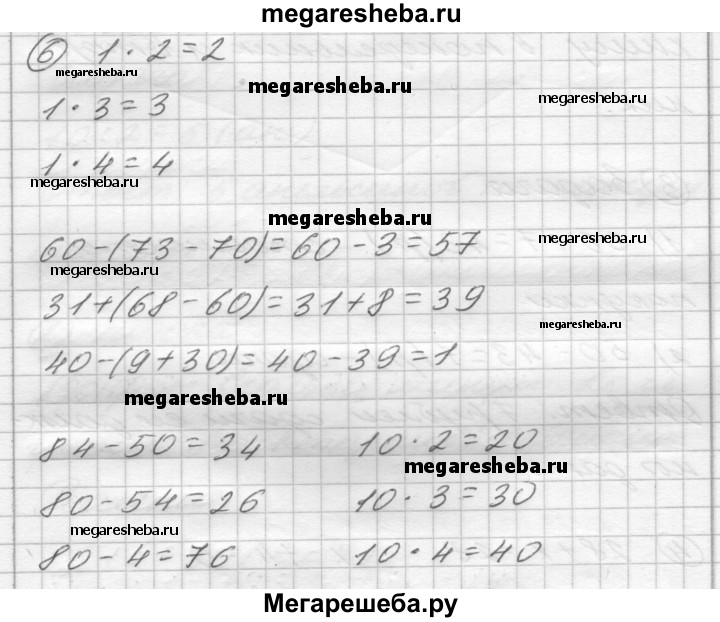 megaresheba.ru
6 1 · 2 = 2
megaresheba.ru
megaresheba.ru
1 · 3 = 3
megaresheba.ru
1 · 4 = 4
megaresheba.ru
megaresheba.ru
60 - (73 - 70) = 60 - 3 = 57
megaresheba.ru
megaresheba.ru
31 + (68 - 60) = 31 + 8 = 39
megaresheba.ru
40 - (9 + 30) = 40 - 39 = 1
megaresheba.ru
84 - 50 = 34 10 · 2 = 20
megaresheba.ru
80 - 54 = 26 10 · 3 = 30
megaresheba.ru
80 - 4 = 76 10 · 4 = 40
Мегарешеба.ру